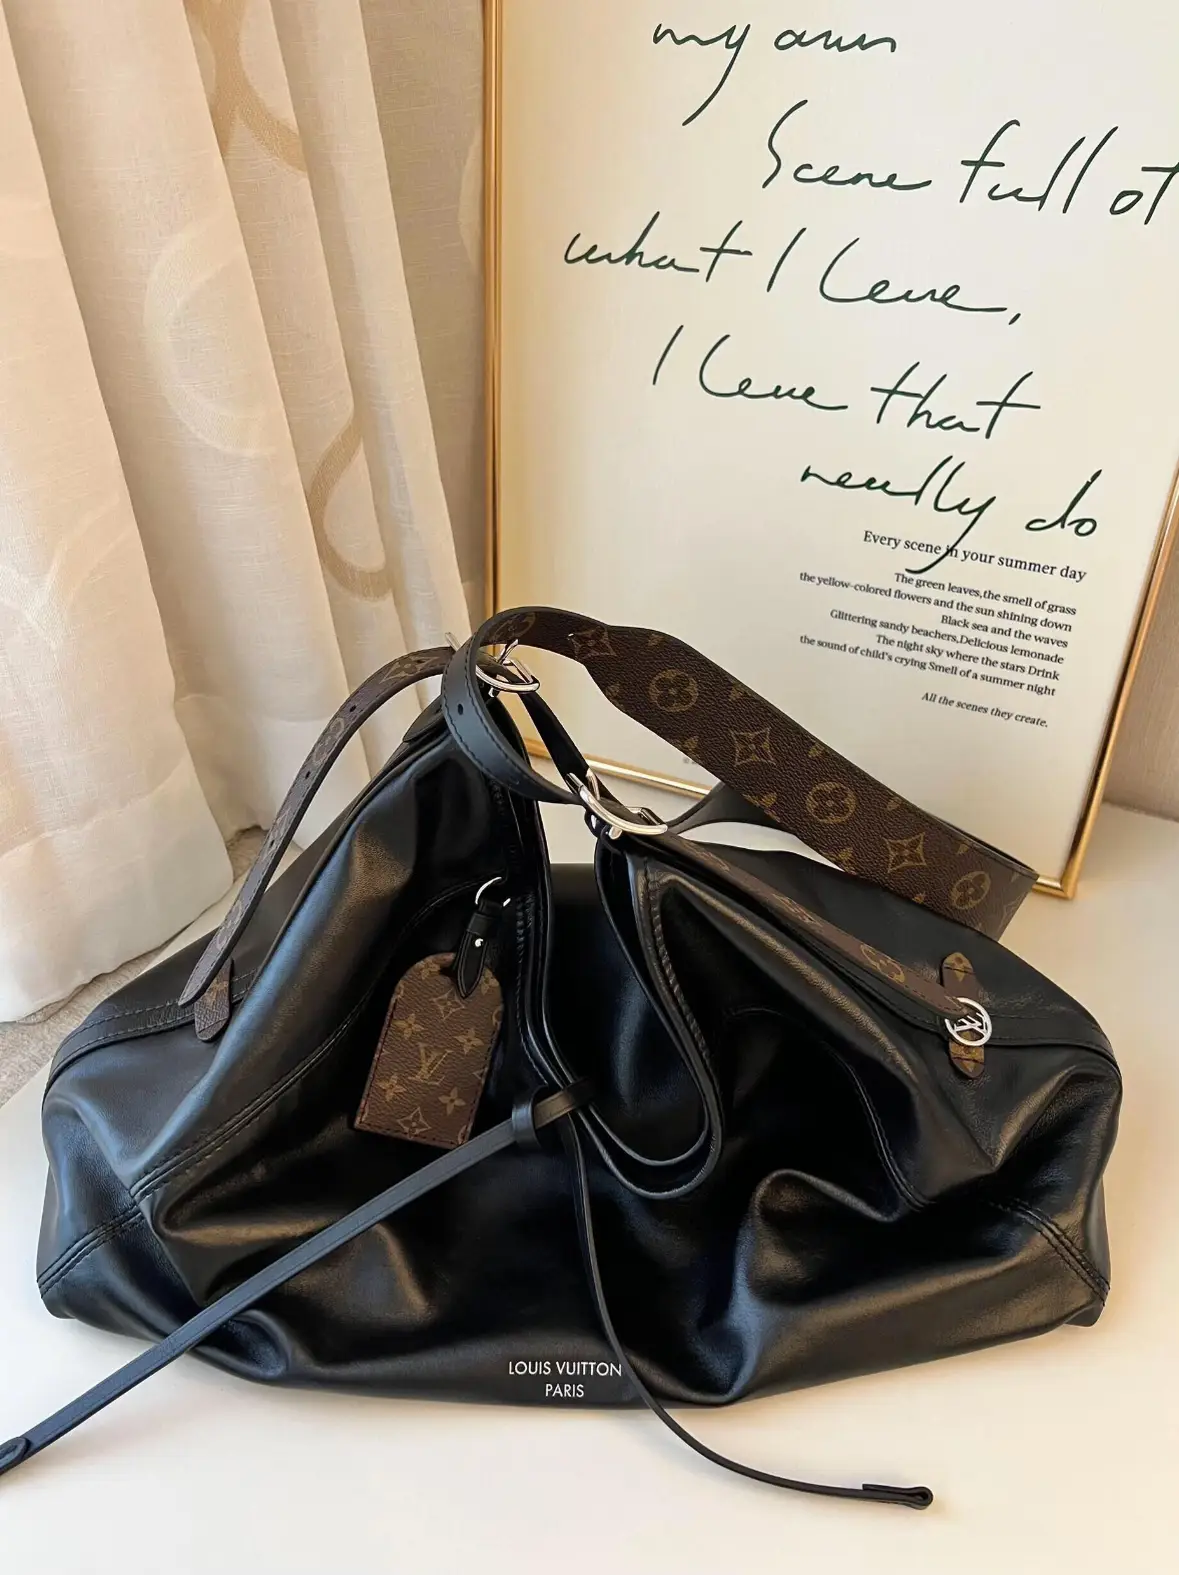 my own
Scene full of
what I love,
I love that
really do
Every scene in your summer day
The green leaves,the smell of grass
the yellow-colored flowers and the sun shining down
Black sea and the waves
Glittering sandy beachers,Delicious lemonade
The night sky where the stars Drink
the sound of child's crying Smell of a summer night
All the scenes they create.
LV
LV
LOUIS VUITTON
PARIS